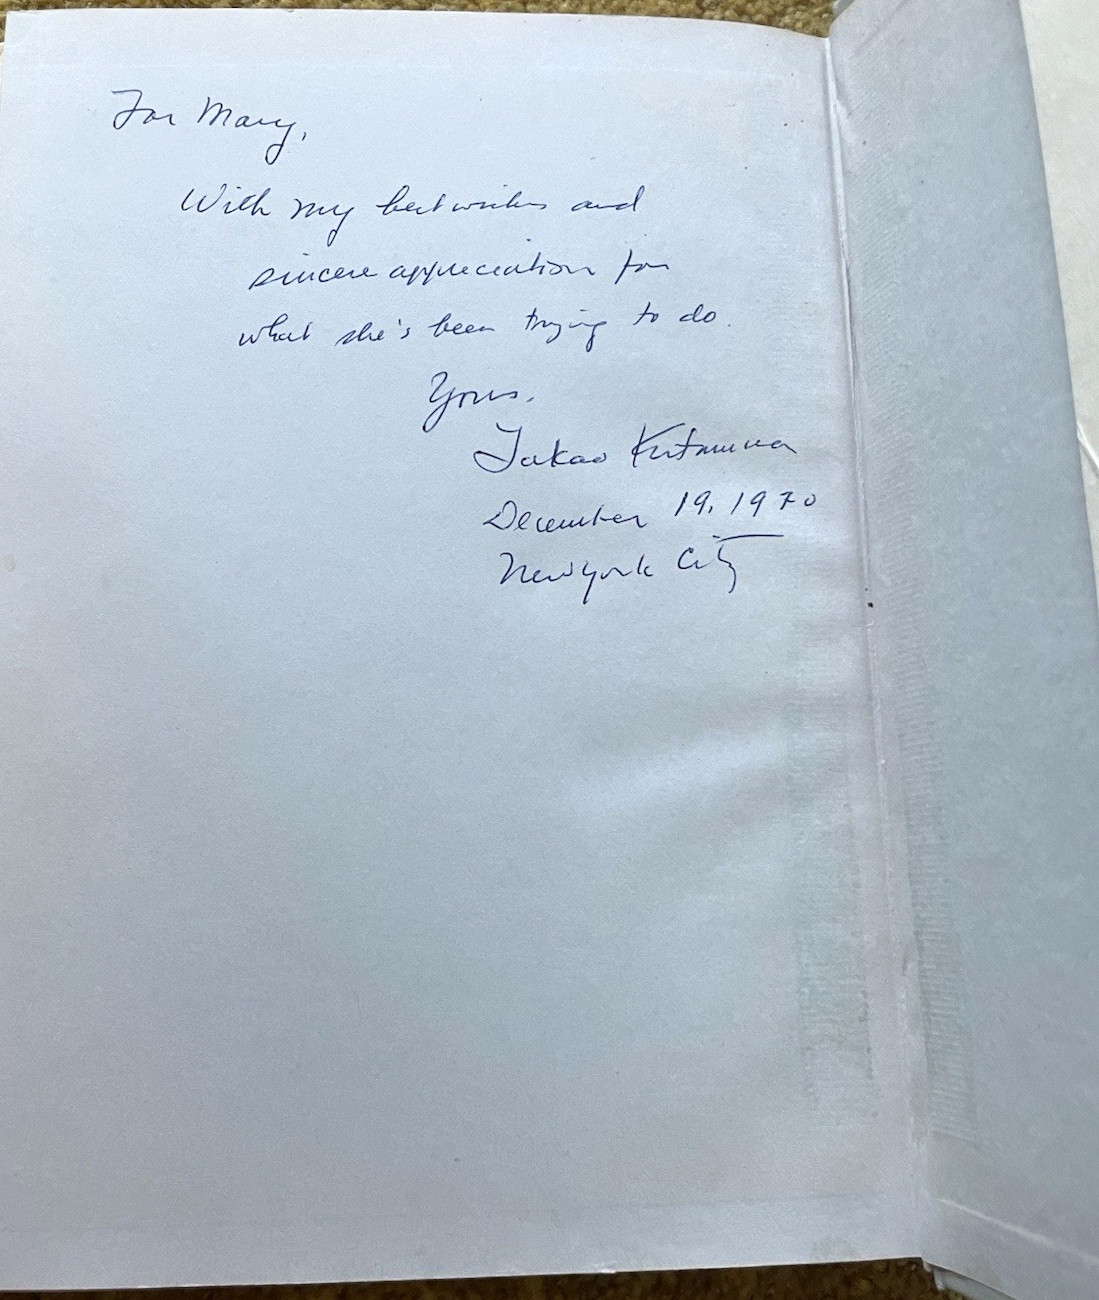 For Mary,
With my best wishes and
sincere appreciation for
what she's been trying to do.
Yours,
Takao
December 19, 1970
New York City